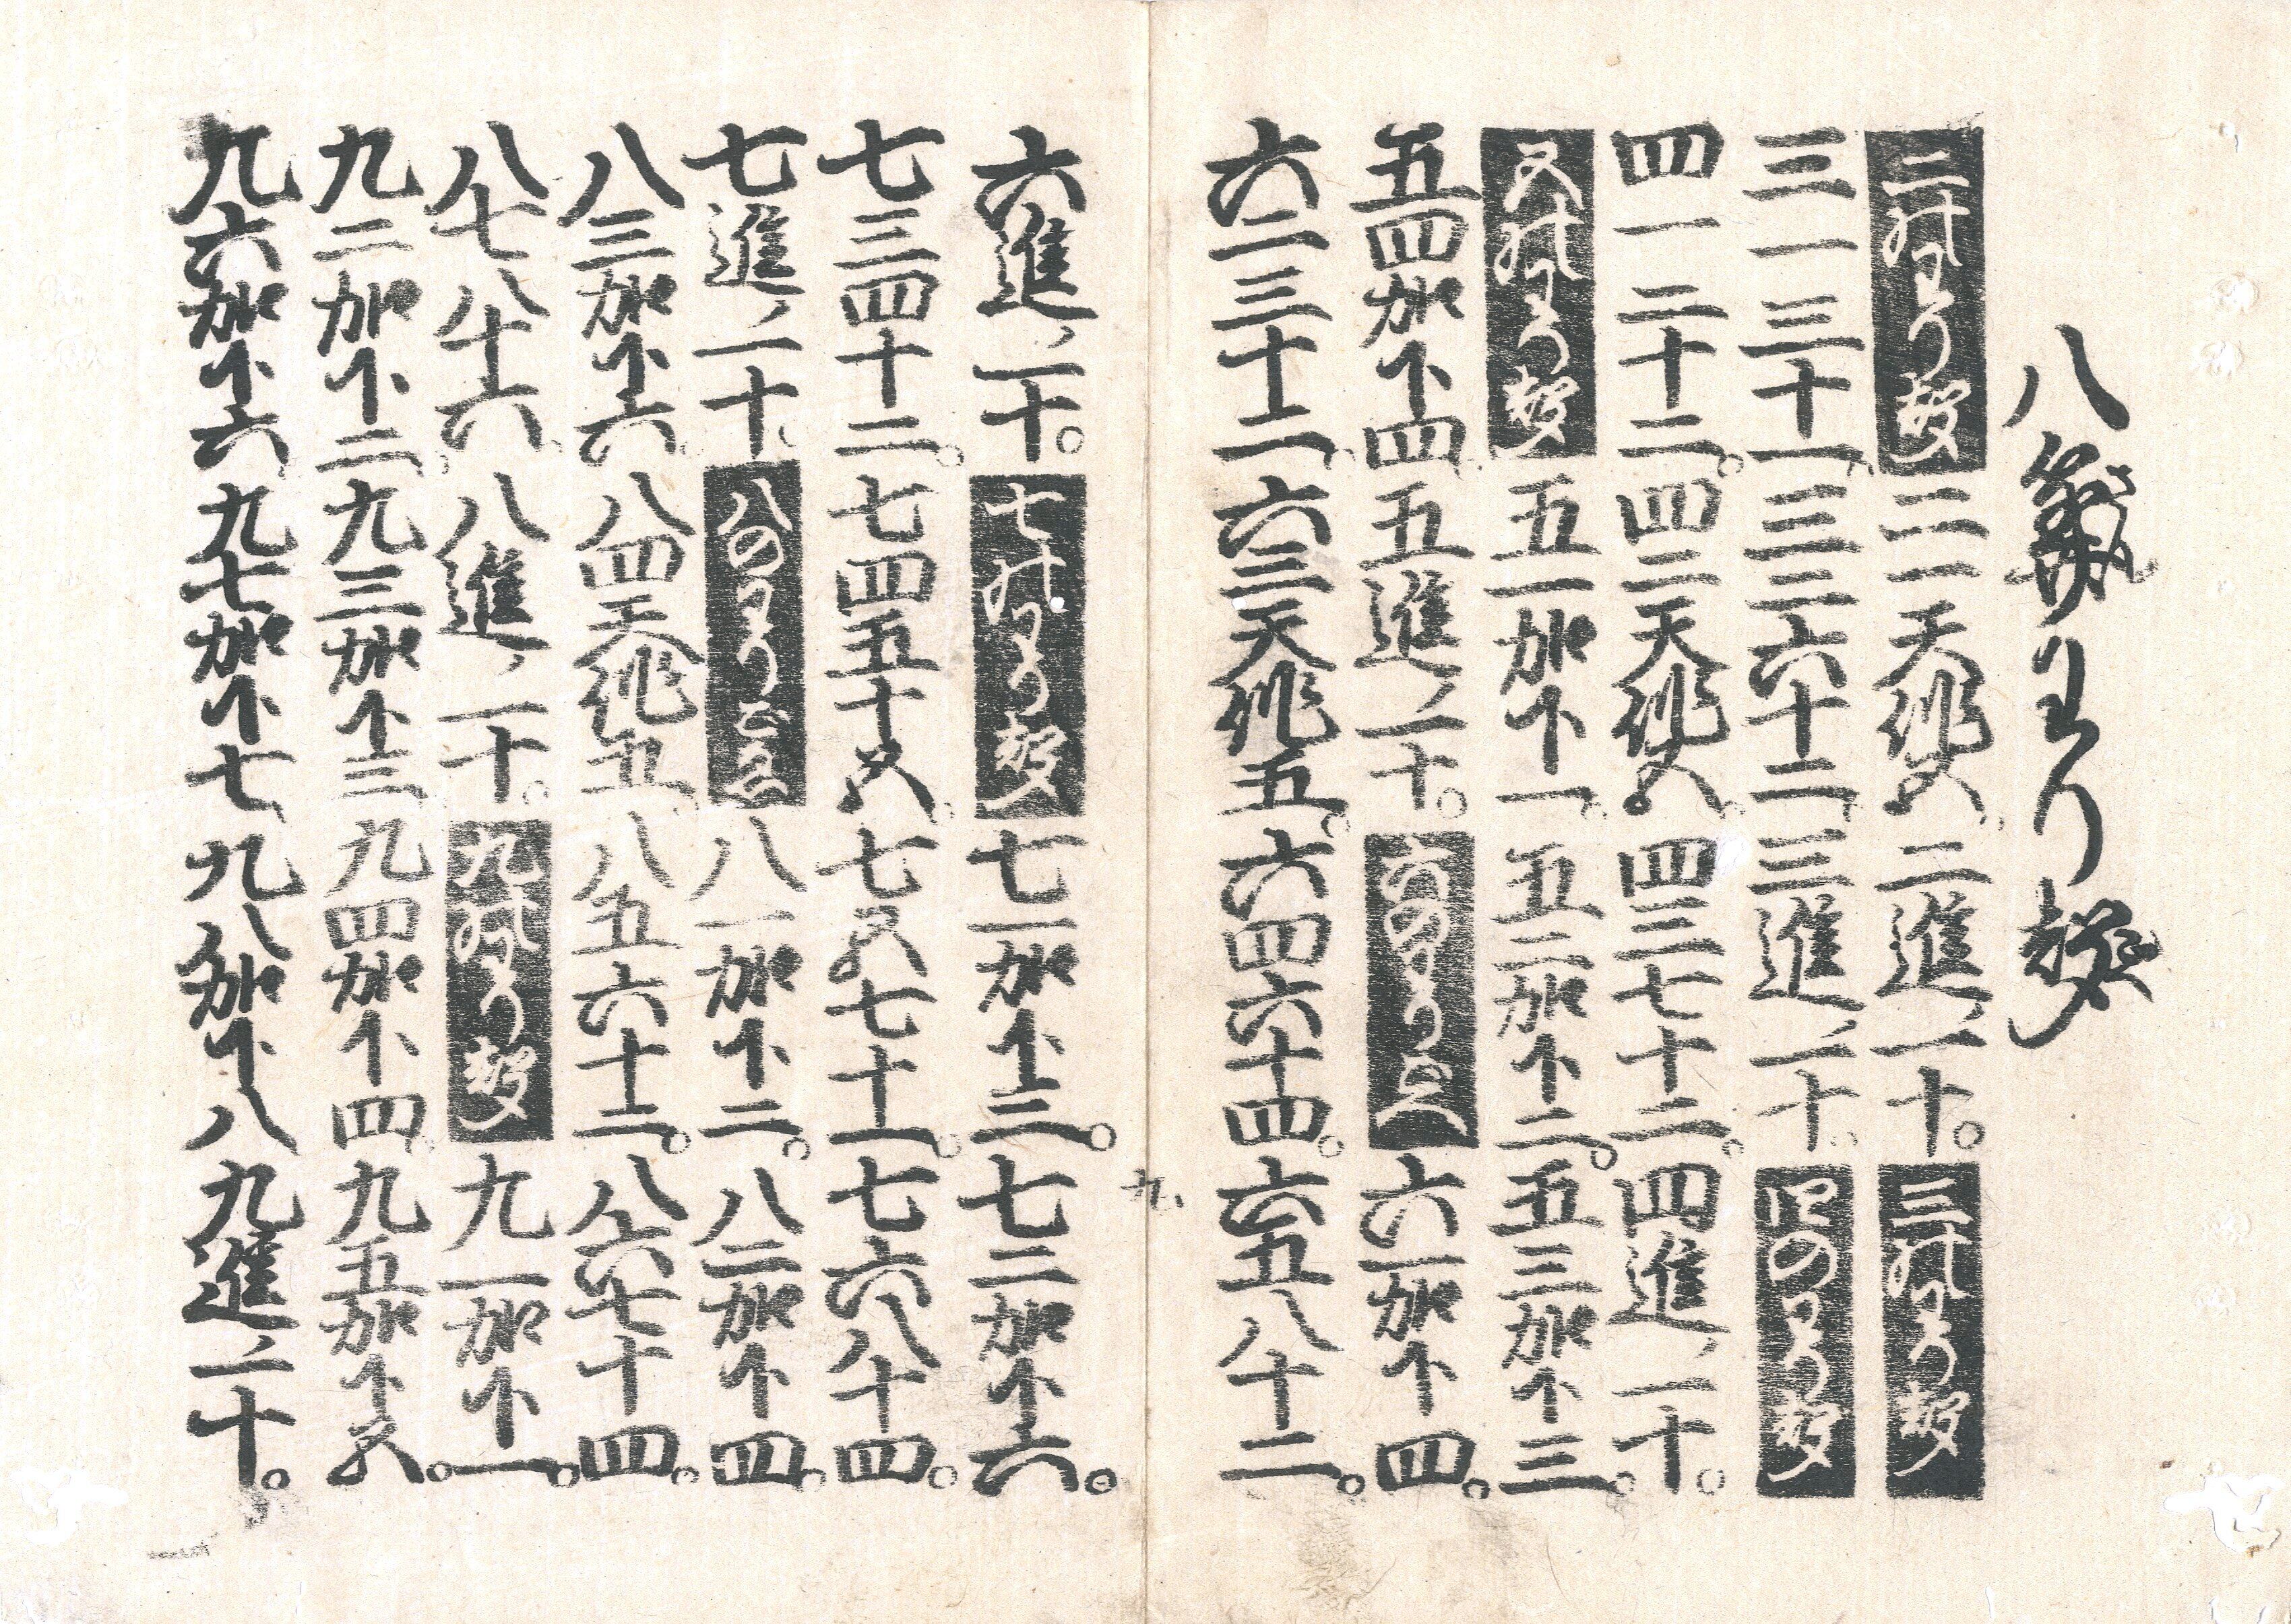 八算わり聲
二のわり聲 二一天作五 二進一十。 三のわり聲
三一三十一。 三二六十二 三進一十。 四のわり聲
四一二十二。 四二天作五。 四三七十二。 四進一十。
五のわり聲 五一加下一。 五二加下二。 五三加下三。
五四加下四 五進一十。 六のわりこゑ 六一加下四。
六二三十二。 六三天作五。 六四六十四。 六五八十二。
九
六進一十。 七のわり聲 七一加下三。 七二加下六。
七三四十二。 七四五十五。 七五七十一。 七六八十四。
七進一十。 八のわりごゑ 八一加下二。 八二加下四。
八三加下六。 八四天作五。 八五六十二。 八六七十四。
八七八十六。 八進一十。 九のわり聲 九一加下一。
九二加下二。 九三加下三 九四加下四 九五加下五。
九六加下六 九七加下七 九八加下八 九進一十。